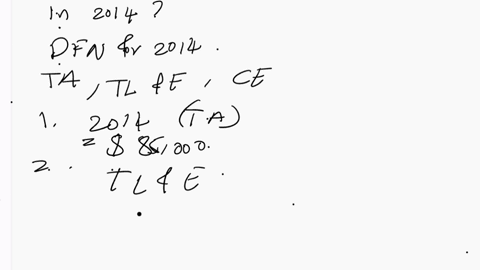 In 2014 ?
DFN for 2014.
TA, TL & E, CE
1. 2014 (T.A)
= $ 85,000.
2. TL & E